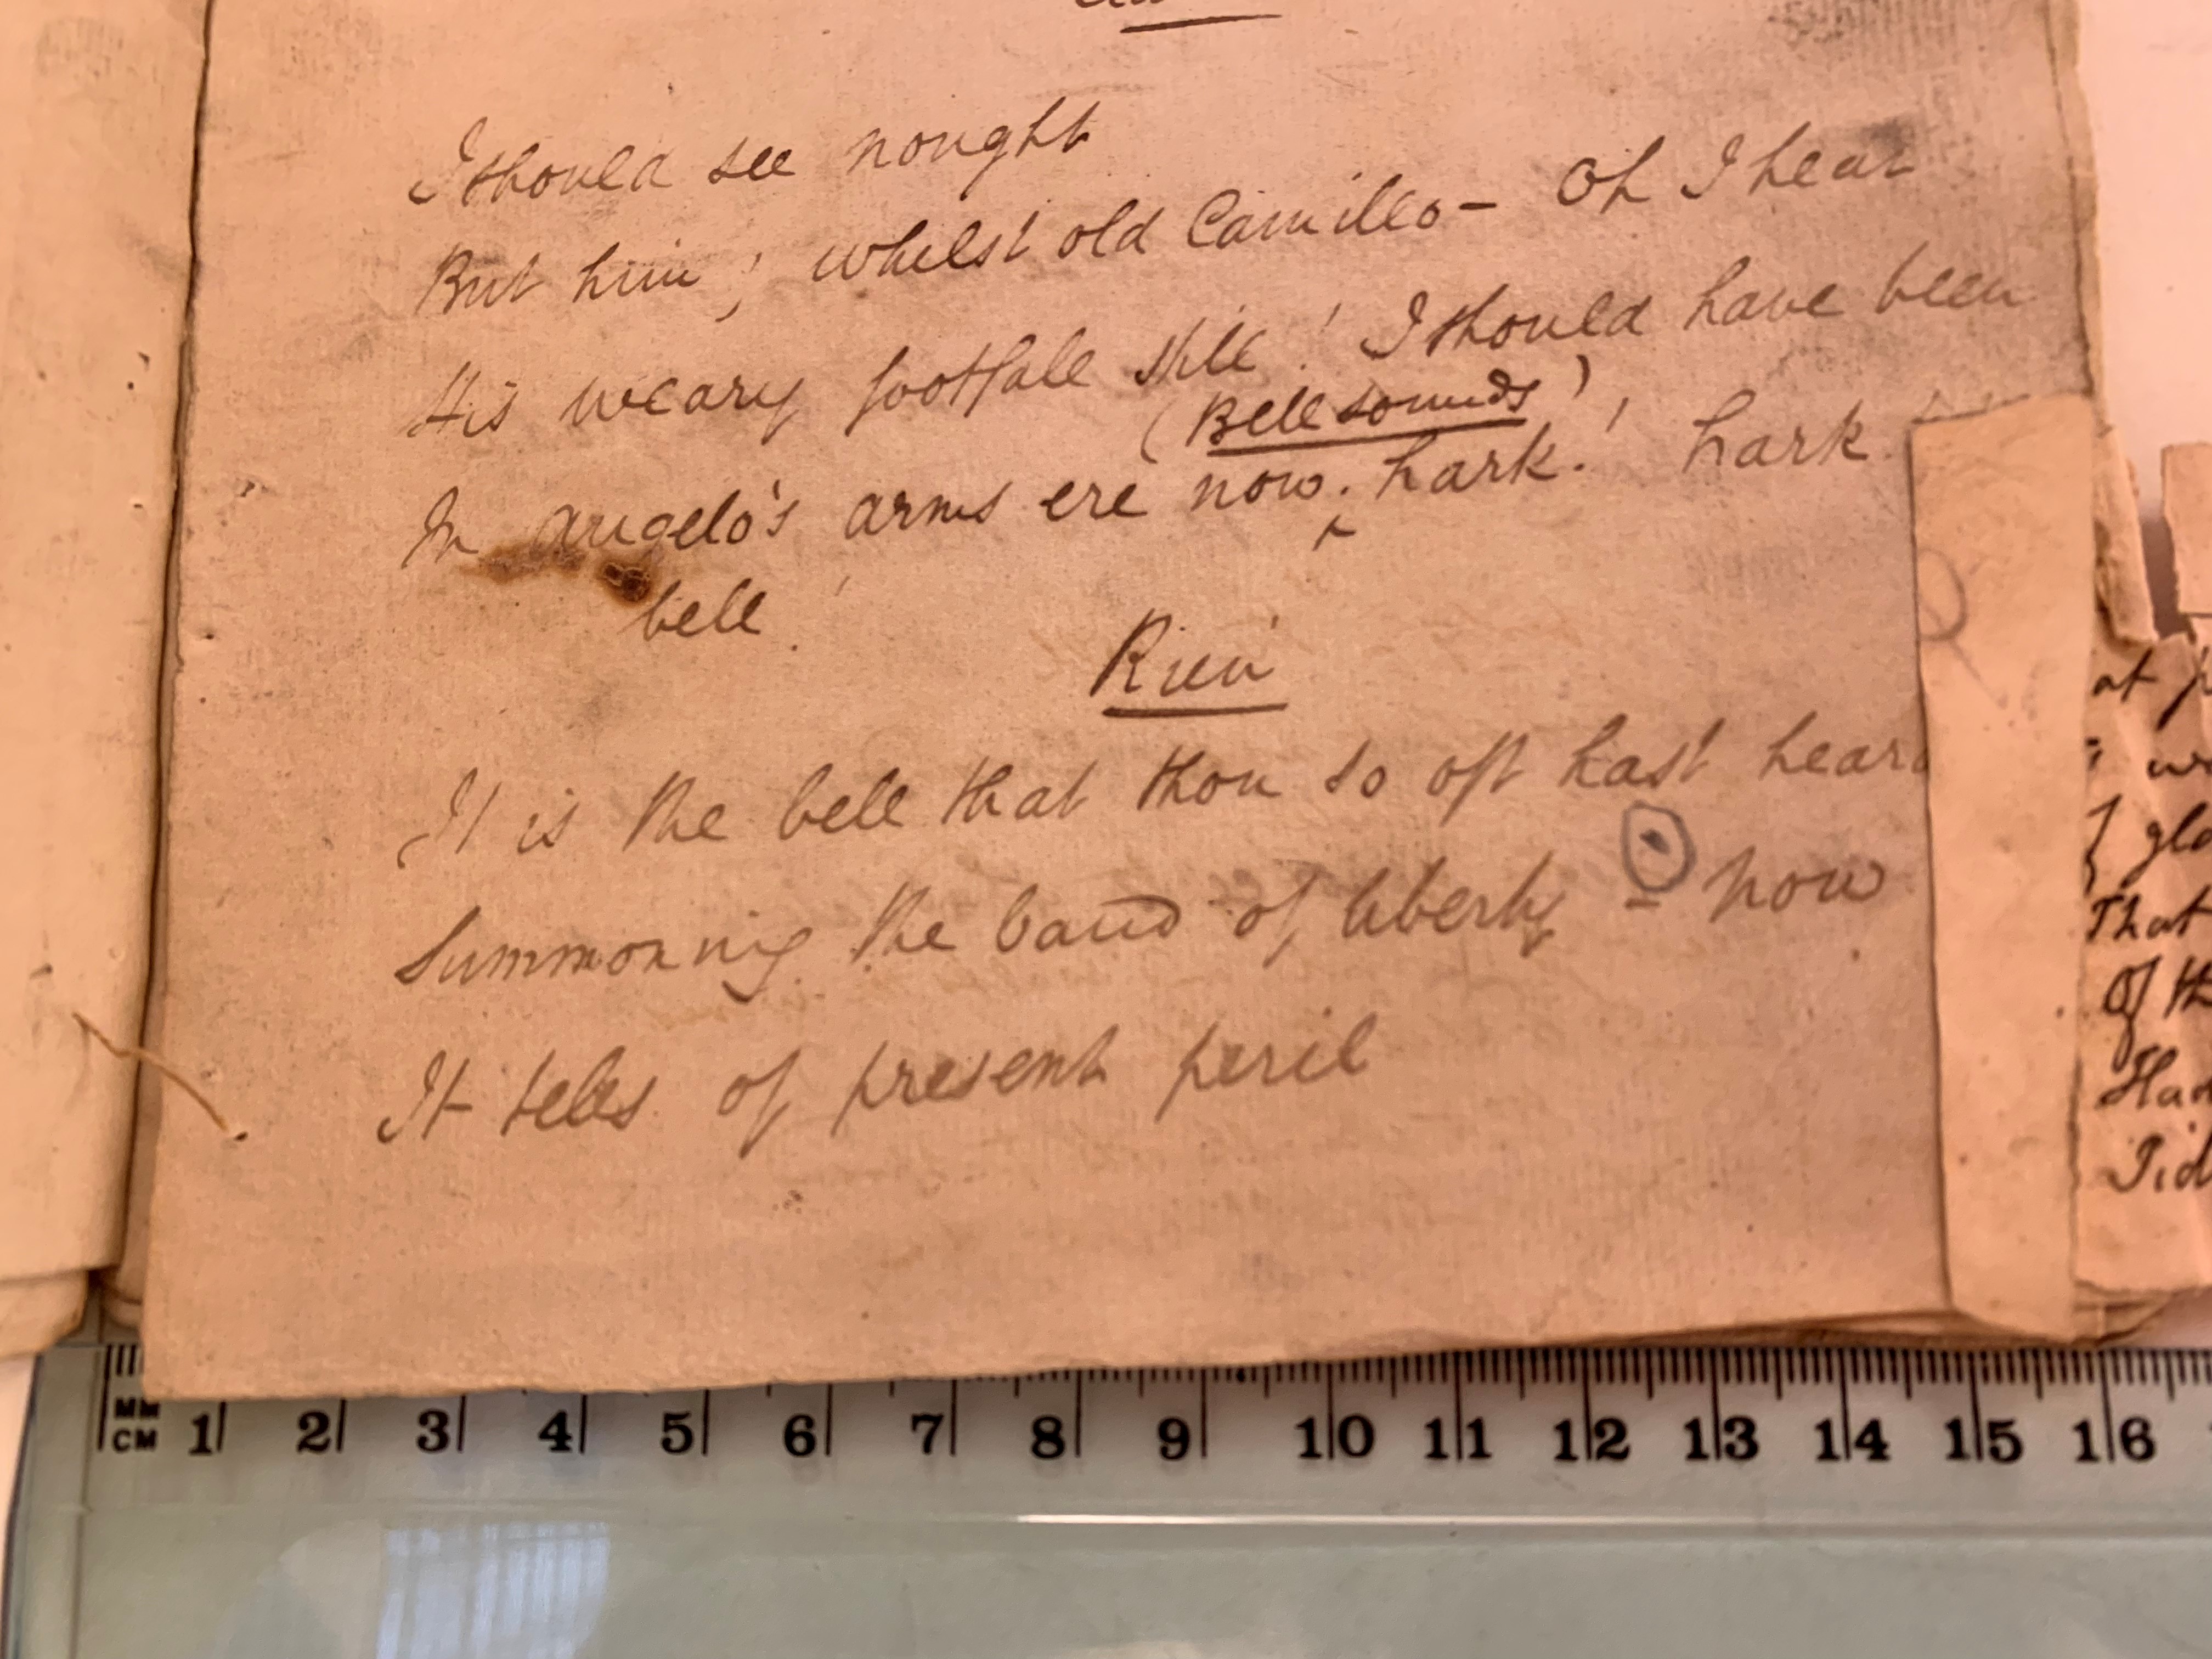 I should see nought
But him; whilst old Camillo— Oh I hear
His weary footfall still! I should have been
(Bell sounds)
In Angelo's arms ere now; hark! hark
bell!
Rien
It is the bell that thou so oft hast heard
Summoning the band of liberty – now
It tells of present peril
at p
we
gla
That
Of th
Had
MM
CM 1 2 3 4 5 6 7 8 9 10 11 12 13 14 15 16